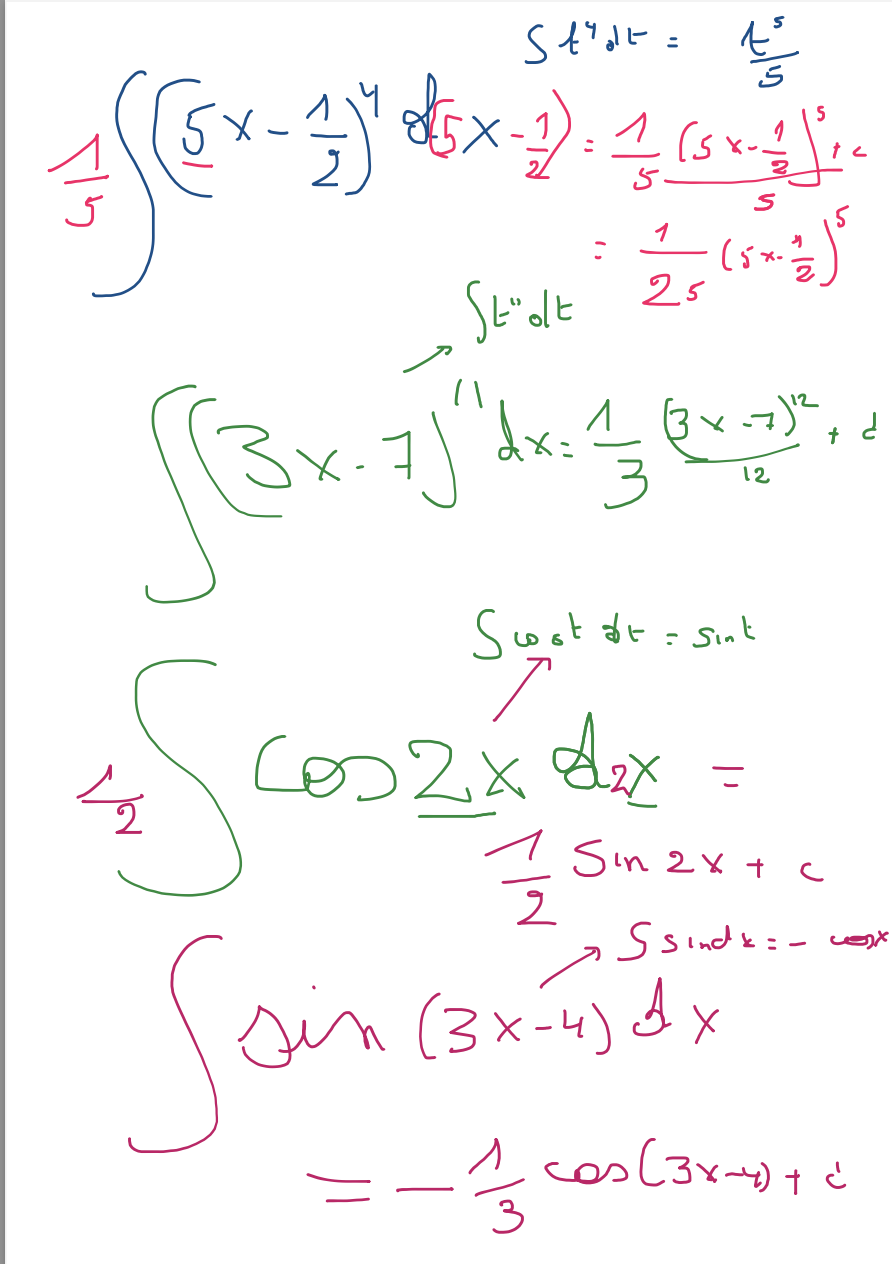 ∫ t⁴ dt = t⁵/5
1/5 ∫ (5x - 1/2)⁴ d(5x - 1/2) = 1/5 (5x - 1/2)⁵/5 + c
= 1/25 (5x - 1/2)⁵
∫ t¹¹ dt
∫ (3x - 7)¹¹ dx = 1/3 (3x - 7)¹²/12 + c
∫ cos t dt = sin t
1/2 ∫ cos 2x d2x =
1/2 sin 2x + c
∫ sin dx = - cos x
∫ sin (3x - 4) dx
= - 1/3 cos(3x - 4) + c